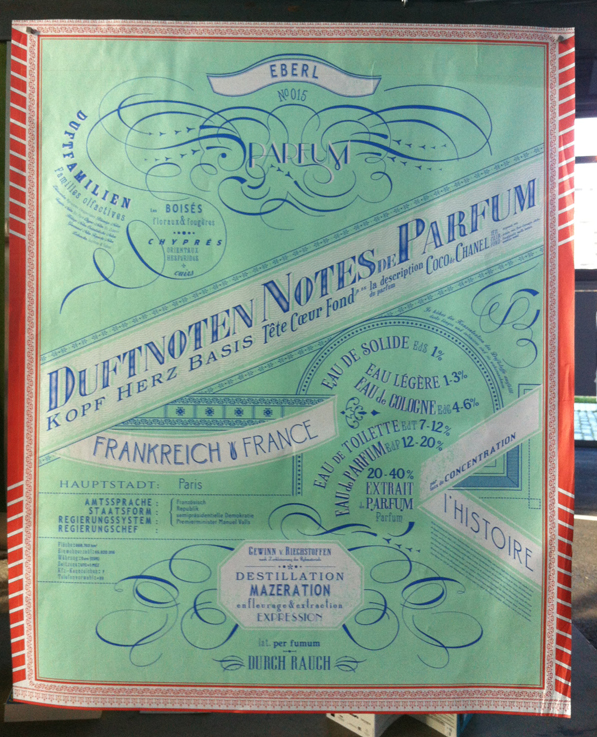 EBERL
Nº 015
PARFUM
DUFTFAMILIEN
Familles olfactives
les BOISÉS
Floraux & fougères
CHYPRÉS
ORIENTAUX
HESPÉRIDÉS
&
CUIRS
DUFTNOTEN NOTES DE PARFUM
KOPF HERZ BASIS Tête Cœur Fond
la description
de parfum
COCO de CHANEL
EAU DE SOLIDE EdS 1%
EAU LÉGÈRE 1-3%
EAU de COLOGNE EdC 4-6%
EAU DE TOILETTE EdT 7-12%
EAU de PARFUM EdP 12-20%
20-40%
EXTRAIT
de PARFUM
Parfum
CONCENTRATION
l'HISTOIRE
FRANKREICH FRANCE
HAUPTSTADT: Paris
AMTSSPRACHE : Französisch
STAATSFORM : Republik
REGIERUNGSSYSTEM : semipräsidentielle Demokratie
REGIERUNGSCHEF : Premierminister Manuel Valls
GEWINN v. RIECHSTOFFEN
DESTILLATION
MAZERATION
enfleurage & extraction
EXPRESSION
lat. per fumum
DURCH RAUCH